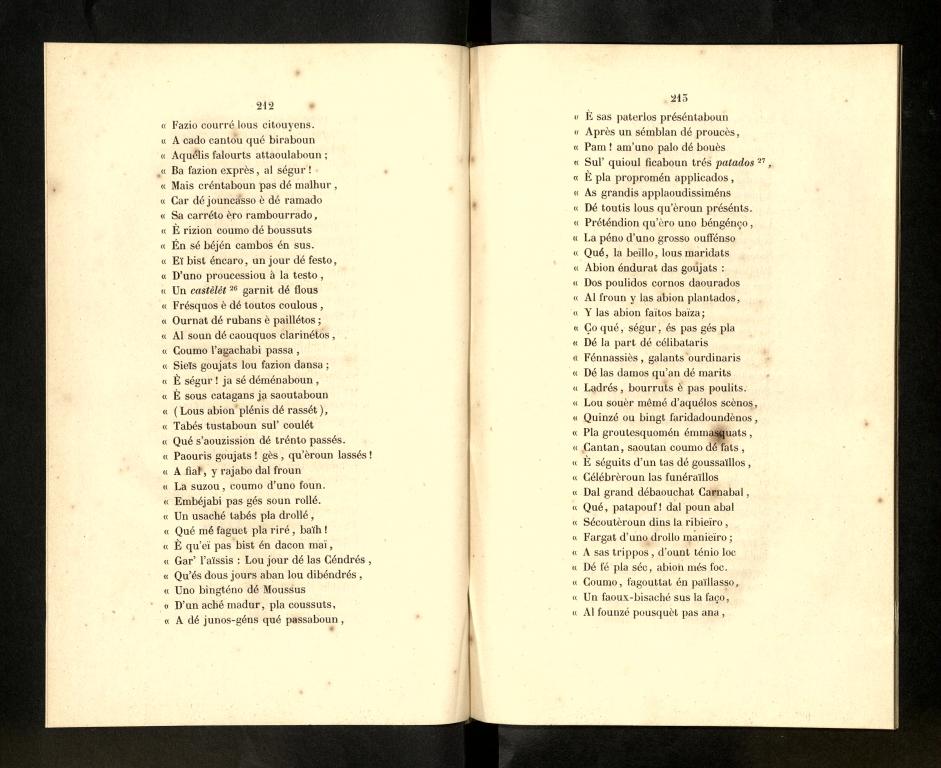 212
« Fazio courré lous citouyens.
« A cado cantou qué biraboun
« Aquélis falourts attaoulaboun ;
« Ba fazion exprès, al ségur !
« Mais créntaboun pas dé malhur ,
« Car dé jouncasso è dé ramado
« Sa carréto èro rambourrado ,
« È rizion coumo dé boussuts
« Én sé béjén cambos én sus.
« Eï bist éncaro, un jour dé festo ,
« D'uno proucessiou à la testo ,
« Un castèlét 26 garnit dé flous
« Frésquos è dé toutos coulous ,
« Ournat dé rubans è pailletos ;
« Al soun dé caouquos clarinétos ,
« Coumo l'agachabi passa ,
« Sieïs goujats lou fazion dansa ;
« È ségur ! ja sé déménaboun ,
« È sous catagans ja saoutaboun
« (Lous abion plénis dé rassét ),
« Tabés tustaboun sul' coulét
« Qué s'aouzission dé trénto passés.
« Paouris goujats ! gès , qu'èroun lassés !
« A fial , y rajabo dal froun
« La suzou, coumo d'uno foun.
« Embéjabi pas gés soun rollé.
« Un usaché tabés pla drollé ,
« Qué mé faguet pla riré , baïh !
« È qu'eï pas bist én dacon maï ,
« Gar' l'aïssis : Lou jour dé las Céndrés ,
« Qu'és dous jours aban lou dibéndrés ,
« Uno bingténo dé Moussus
« D'un aché madur, pla coussuts,
« A dé junos-géns qué passaboun ,
213
« È sas paterlos préséntaboun
« Après un sémblan dé proucès ,
« Pam ! am'uno palo dé bouès
« Sul' quioul ficaboun trés patados 27 ,
« È pla propromén applicados ,
« As grandis applaoudissiméns
« Dé toutis lous qu'èroun présénts.
« Préténdion qu'èro uno béngénço ,
« La péno d'uno grosso oufférnso
« Qué, la beïllo, lous maridats
« Abion éndurat das goujats :
« Dos poulidos cornos daourados
« Al froun y las abion plantados,
« Y las abion faïtos baïza;
« Ço qué, ségur, és pas gés pla
« Dé la part dé célibataris
« Fénnassiès , galants ourdinaris
« Dé las damos qu'an dé marits
« Ladrés , bourruts è pas poulits.
« Lou souèr mêmé d'aquélos scènos ,
« Quinzé ou bingt faridadoundènos ,
« Pla groutesquomén émmasquats ,
« Cantan, saoutan coumo dé fats ,
« È séguits d'un tas dé goussaïllos ,
« Célébrèroun las funéraïllos
« Dal grand débaouchat Carnabal ,
« Qué, patapouf! dal poun abal
« Sécoutèroun dins la ribieïro ,
« Fargat d'uno drollo manieïro ;
« A sas trippos , d'ount ténio loc
« Dé fé pla séc, abion més foc.
« Coumo, fagouttat én païllasso ,
« Un faoux-bisaché sus la faço ,
« Al founzé pousquèt pas ana ,